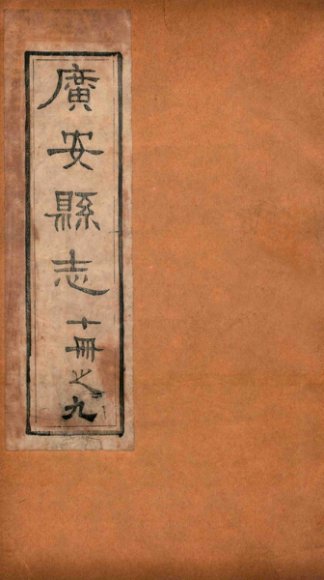 廣安縣志 十冊之九